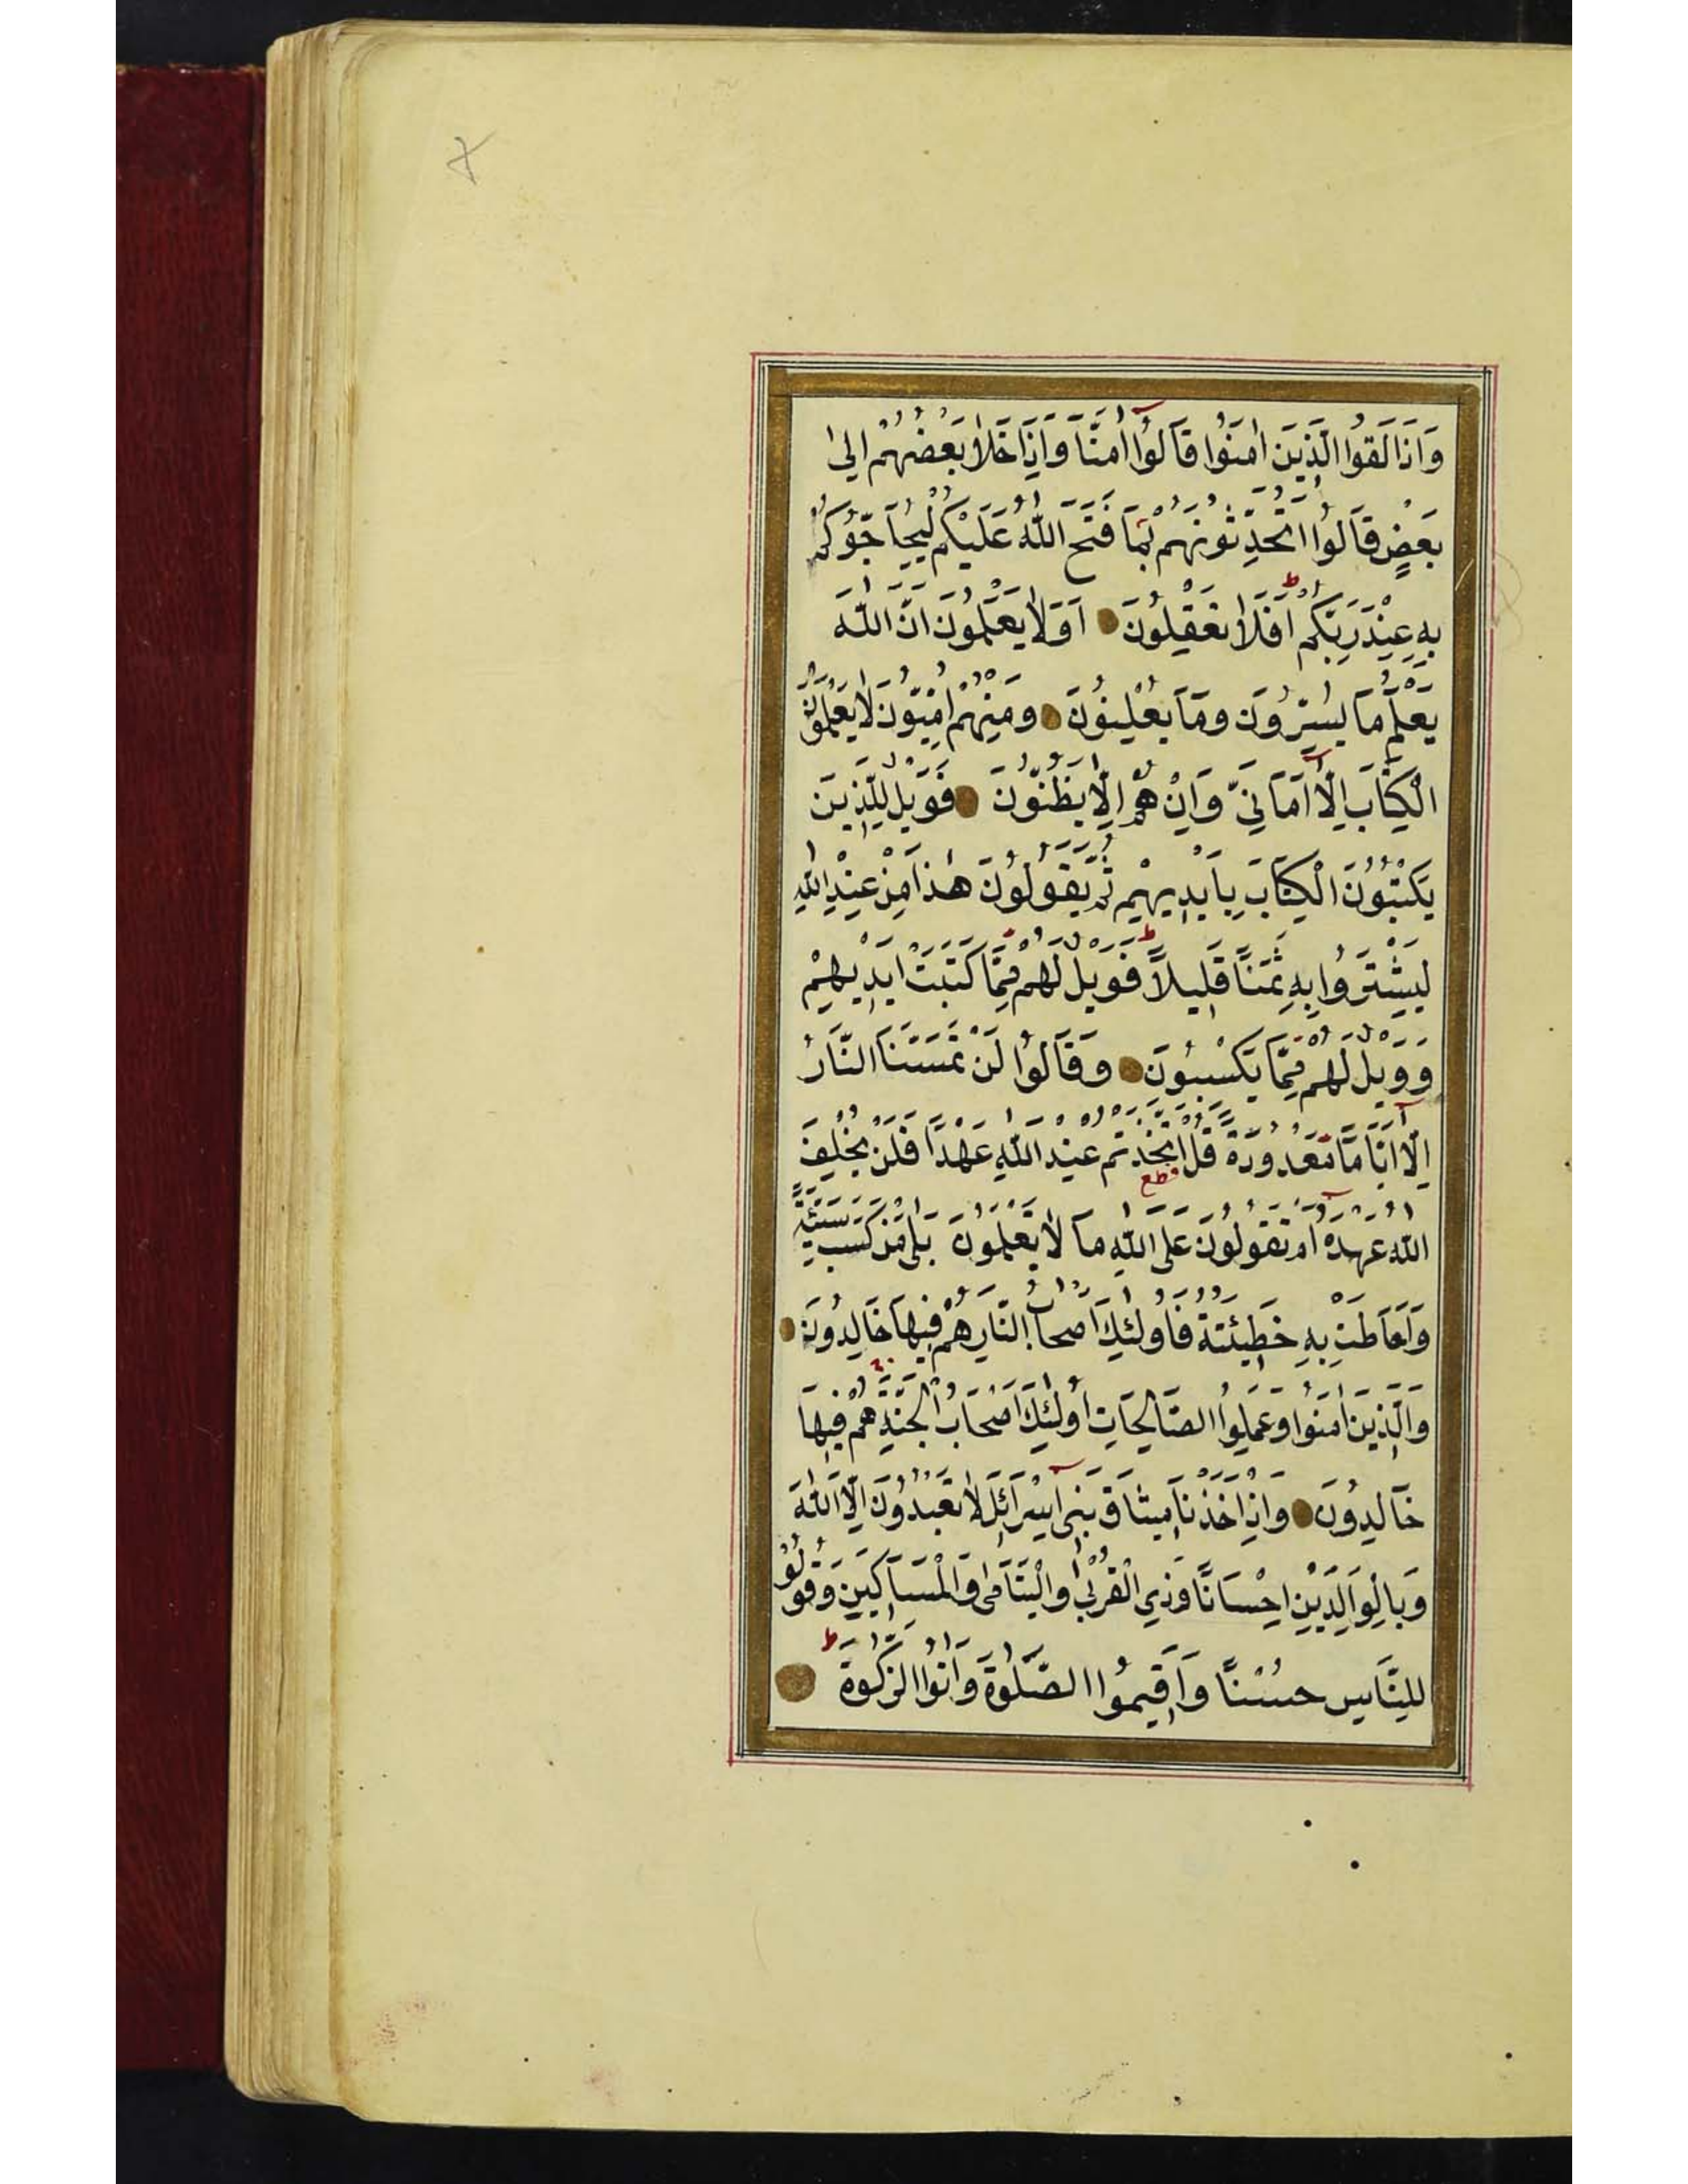 وَاِذَا لَقُوا الَّذِينَ اٰمَنُوا قَالُوٓا اٰمَنَّا وَاِذَا خَلَا بَعْضُهُمْ اِلٰى
بَعْضٍ قَالُوٓا اَتُحَدِّثُونَهُمْ بِمَا فَتَحَ اللّٰهُ عَلَيْكُمْ لِيُحَاجُّوكُمْ
بِهِ عِنْدَ رَبِّكُمْ ط اَفَلَا تَعْقِلُونَ اَوَلَا يَعْلَمُونَ اَنَّ اللّٰهَ
يَعْلَمُ مَا يُسِرُّونَ وَمَا يُعْلِنُونَ وَمِنْهُمْ اُمِّيُّونَ لَا يَعْلَمُونَ
الْكِتَابَ اِلَّآ اَمَانِيَّ وَاِنْ هُمْ اِلَّا يَظُنُّونَ فَوَيْلٌ لِلَّذِينَ
يَكْتُبُونَ الْكِتَابَ بِاَيْدِيهِمْ ثُمَّ يَقُولُونَ هٰذَا مِنْ عِنْدِ اللّٰهِ
لِيَشْتَرُوا بِهِ ثَمَنًا قَلِيلًا ط فَوَيْلٌ لَهُمْ مِمَّا كَتَبَتْ اَيْدِيهِمْ
وَوَيْلٌ لَهُمْ مِمَّا يَكْسِبُونَ وَقَالُوا لَنْ تَمَسَّنَا النَّارُ
اِلَّآ اَيَّامًا مَعْدُودَةً قُلْ اَتَّخَذْتُمْ قطع عِنْدَ اللّٰهِ عَهْدًا فَلَنْ يُخْلِفَ
اللّٰهُ عَهْدَهُٓ اَمْ تَقُولُونَ عَلَى اللّٰهِ مَا لَا تَعْلَمُونَ بَلٰى مَنْ كَسَبَ سَيِّئَةً
وَاَحَاطَتْ بِهِ خَطِيئَتُهُ فَاُولٰئِكَ اَصْحَابُ النَّارِ هُمْ فِيهَا خَالِدُونَ
وَالَّذِينَ اٰمَنُوا وَعَمِلُوا الصَّالِحَاتِ اُولٰئِكَ اَصْحَابُ الْجَنَّةِ هُمْ فِيهَا
خَالِدُونَ وَاِذْ اَخَذْنَا مِيثَاقَ بَنِىٓ اِسْرَائِلَ لَا تَعْبُدُونَ اِلَّا اللّٰهَ
وَبِالْوَالِدَيْنِ اِحْسَانًا وَذِي الْقُرْبٰى وَالْيَتَامٰى وَالْمَسَاكِينِ وَقُولُوا
لِلنَّاسِ حُسْنًا وَاَقِيمُوا الصَّلٰوةَ وَاٰتُوا الزَّكٰوةَ ط